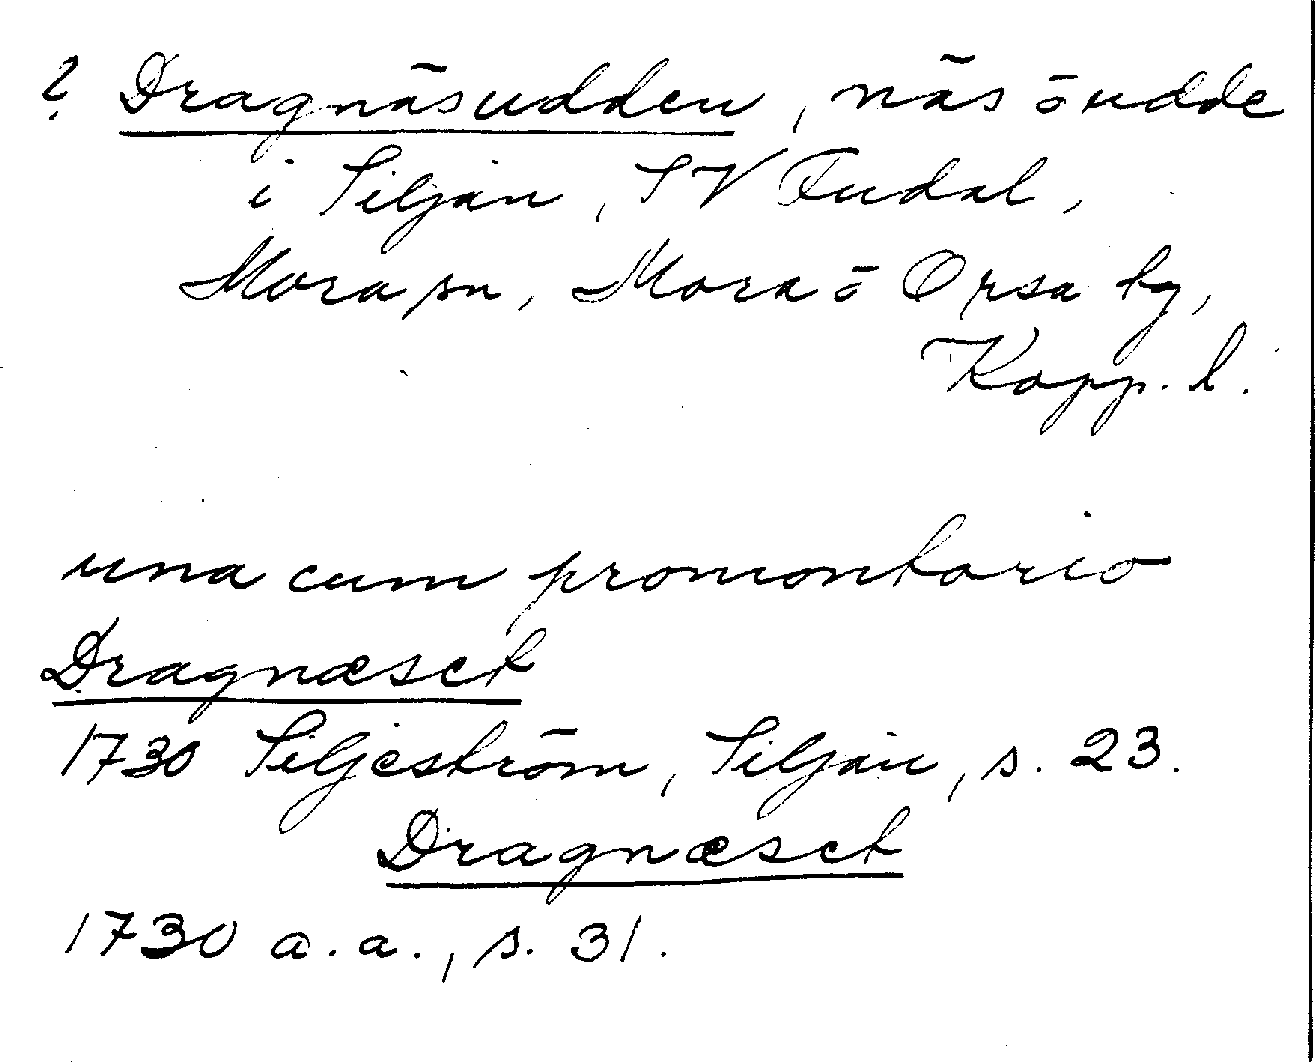 ? Dragnäsudden, näs ö udde
i Siljan, SV Fudal,
Mora sn, Mora ö Orsa tg,
Kopp. l.
una cum promontorio
Dragnæset
1730 Siljeström, Siljan, s. 23.
Dragnæset
1730 a. a., s. 31.